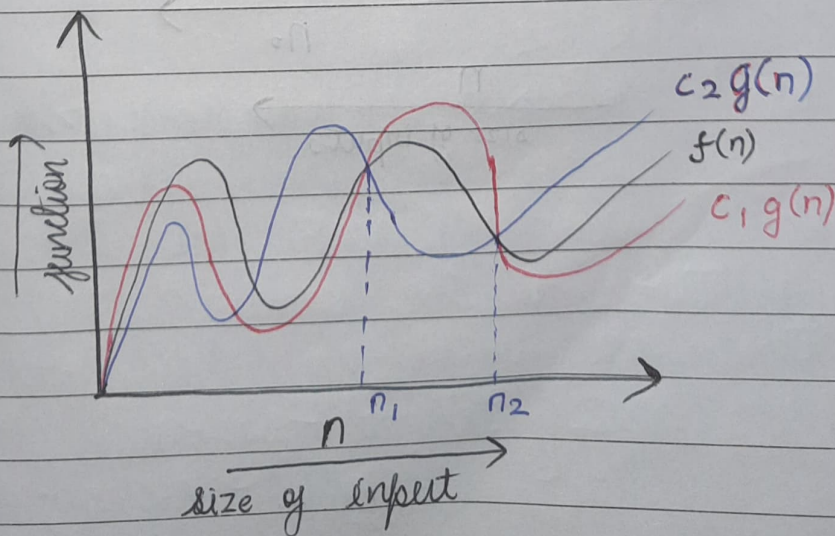 c₂ g(n)
f(n)
c₁ g(n)
function
n₁
n₂
n
size of input